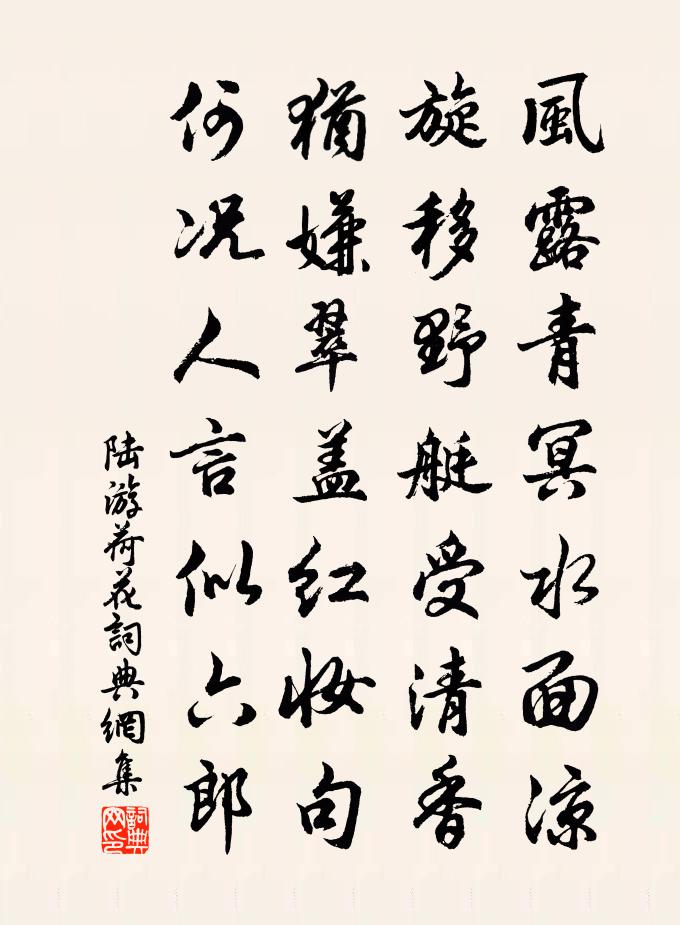 風露青冥水面涼
旋移野艇受清香
猶嫌翠蓋红妝句
何况人言似六郎
陆游荷花詞典網集
詞典網印